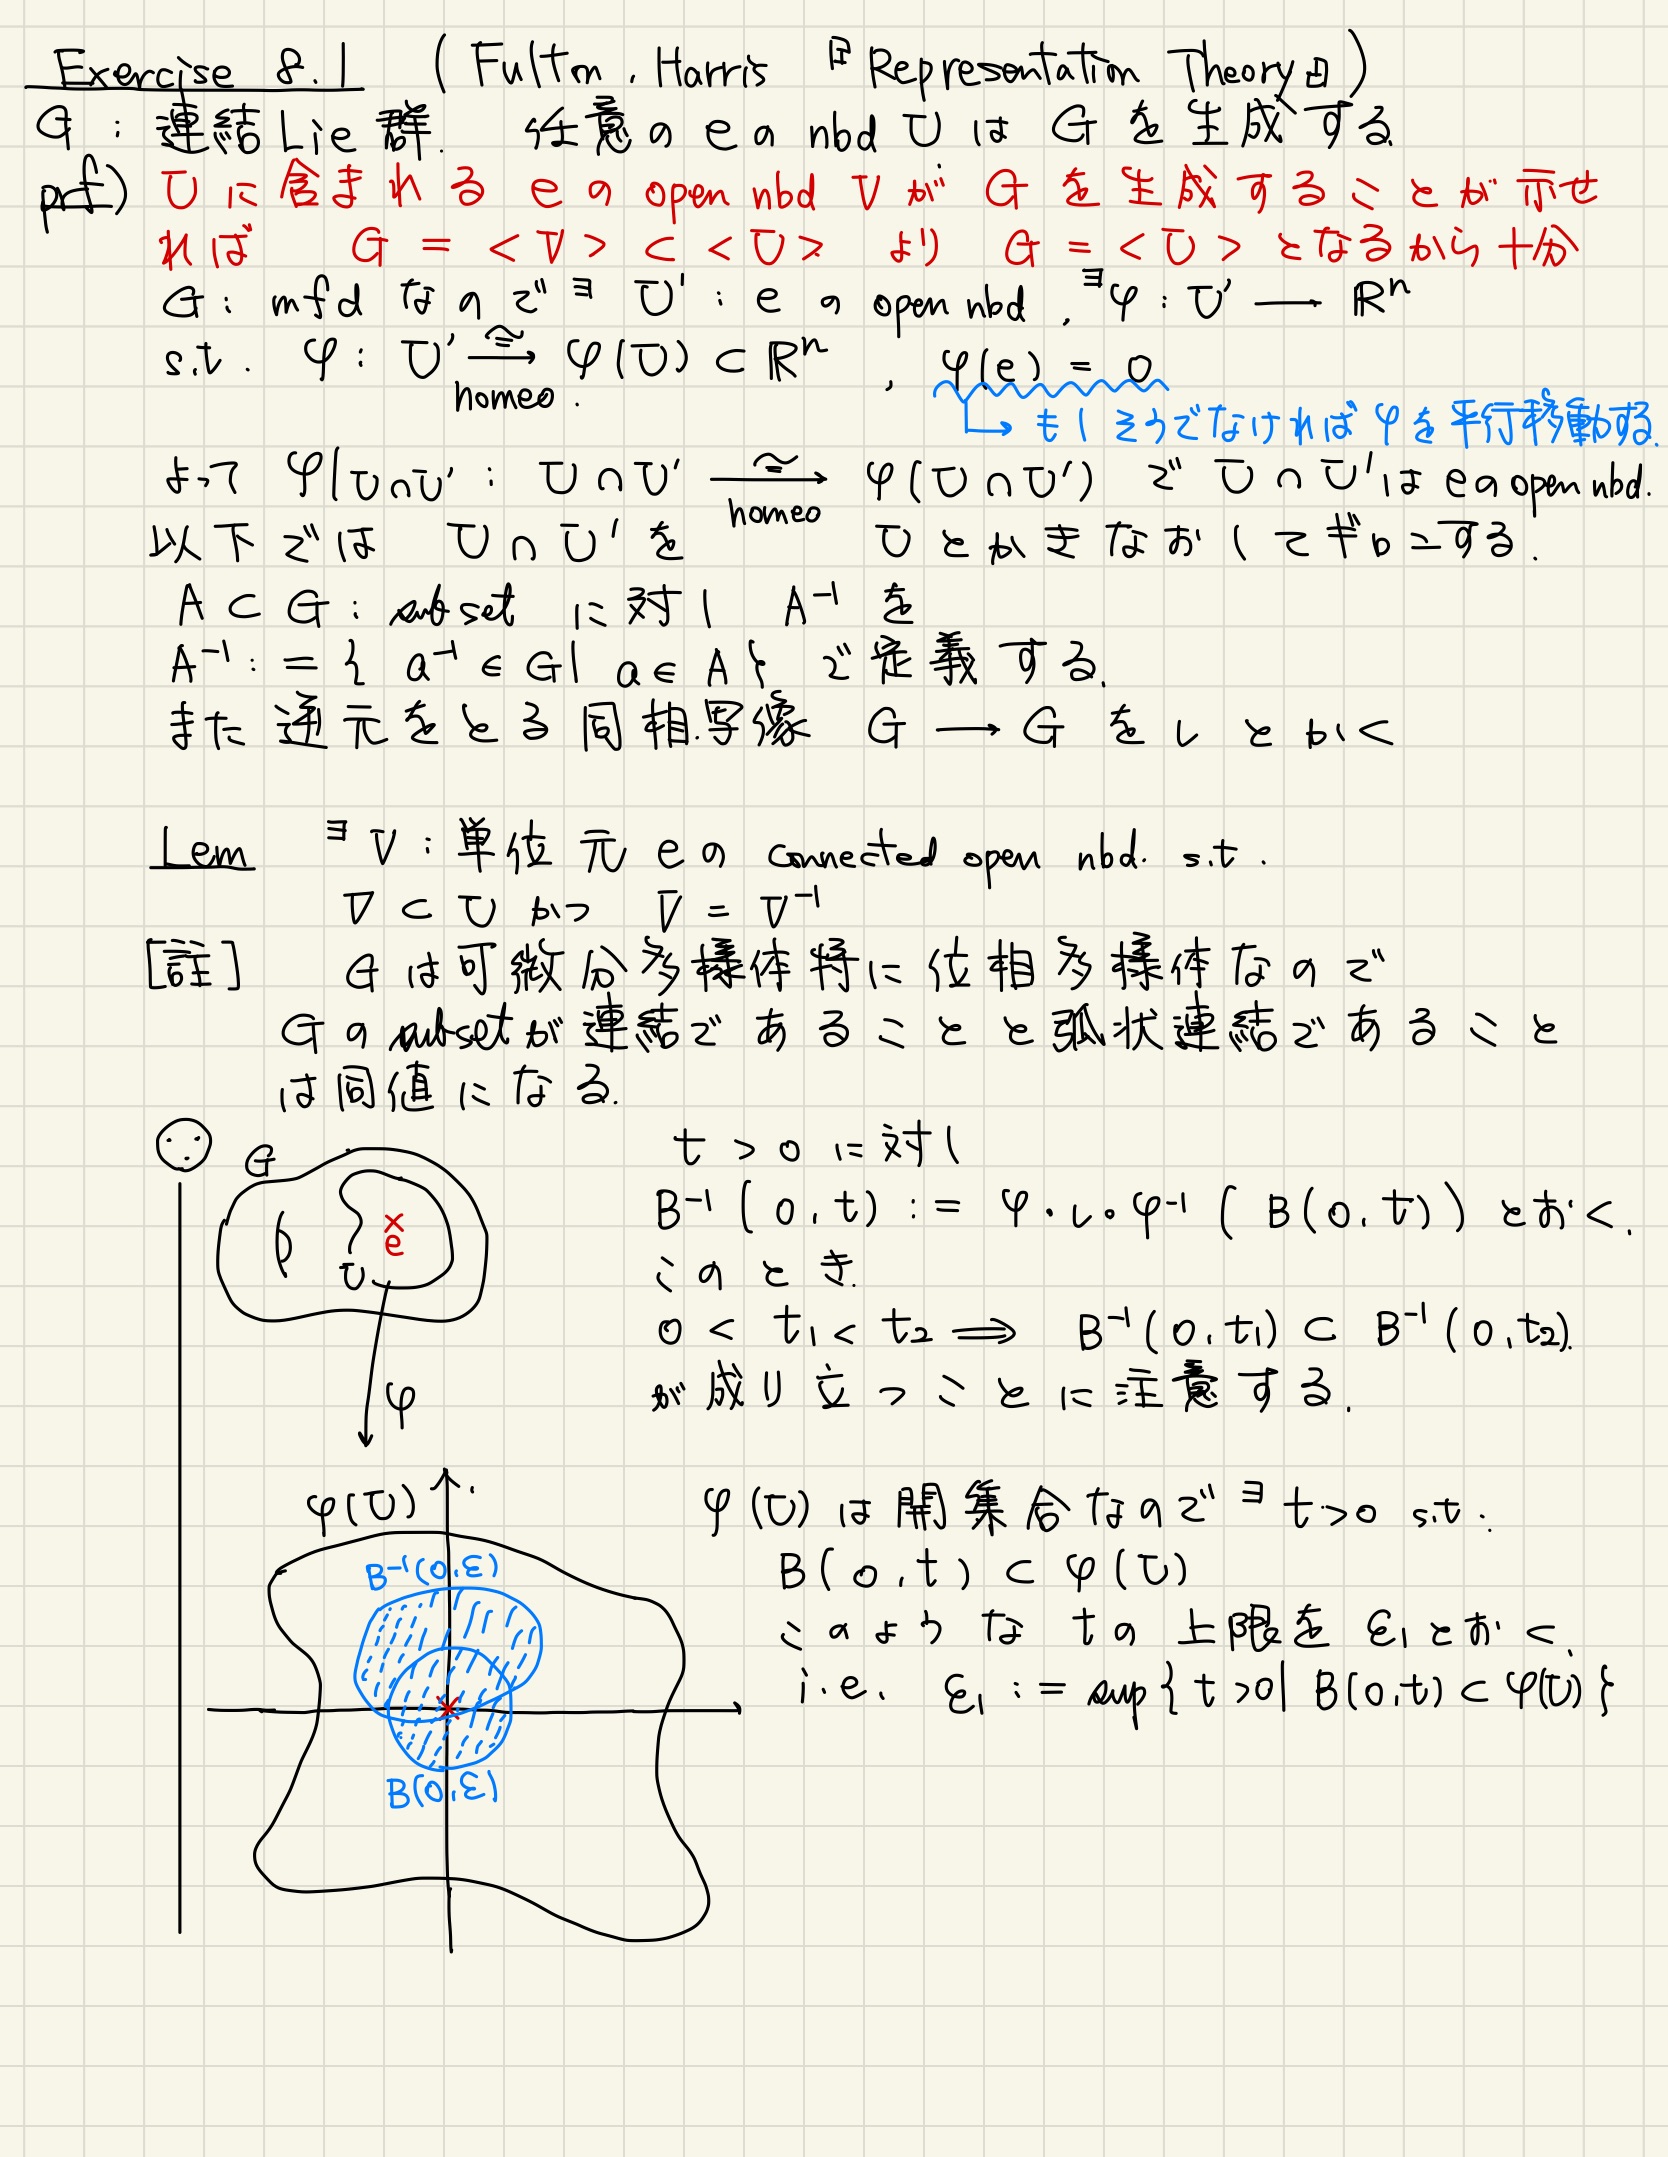 Exercise 8.1 (Fulton, Harris 『Representation Theory』)
G : 連結Lie群. 任意の e の nbd U は G を生成する.
prf) U に含まれる e の open nbd V が G を生成することが示せ
れば G = <V> ⊂ <U> より G = <U> となるから十分
G : mfd なので ∃ U' : e の open nbd, ∃φ : U' → ℝⁿ
s.t. φ : U' ≅→ φ(U) ⊂ ℝⁿ , φ(e) = 0
homeo.
↳ もしそうでなければ φを平行移動する.
よって φ|U∩U' : U∩U' ≅→ φ(U∩U') で U∩U' は eのopen nbd.
homeo
以下では U∩U' を U とかきなおしてギロンする.
A ⊂ G : subset に対し A⁻¹ を
A⁻¹ := { a⁻¹ ∈ G | a ∈ A } で定義する.
また逆元をとる同相写像 G → G を ι とかく
Lem ∃ V : 単位元 e の connected open nbd. s.t.
V ⊂ U かつ V = V⁻¹
[註] G は可微分多様体特に位相多様体なので
G の subset が連結であることと弧状連結であること
は同値になる.
G
e
U
φ
t > 0 に対し
B⁻¹(0,t) := φ∘ι∘φ⁻¹(B(0,t)) とおく.
このとき.
0 < t₁ < t₂ ⟹ B⁻¹(0,t₁) ⊂ B⁻¹(0,t₂).
が成り立つことに注意する.
φ(U)
B⁻¹(0,ε)
B(0,ε)
φ(U) は開集合なので ∃ t>0 s.t.
B(0,t) ⊂ φ(U)
このような t の上限を ε₁ とおく.
i.e. ε₁ := sup{ t>0 | B(0,t) ⊂ φ(U) }